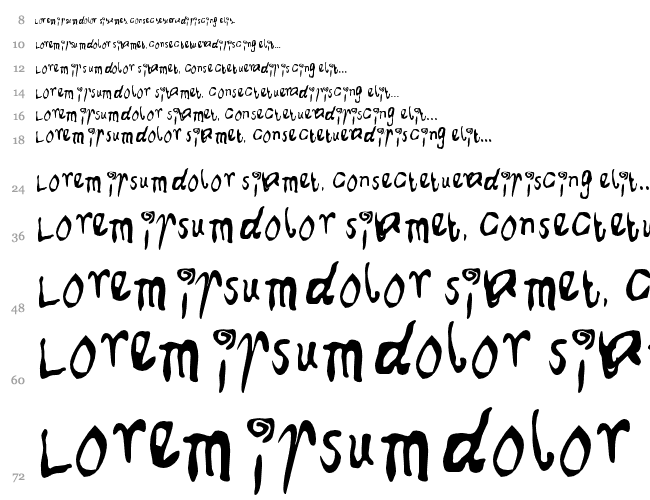 8 Lorem ipsum dolor sit amet, consectetuer adipiscing elit...
10 Lorem ipsum dolor sit amet, consectetuer adipiscing elit...
12 Lorem ipsum dolor sit amet, consectetuer adipiscing elit...
14 Lorem ipsum dolor sit amet, consectetuer adipiscing elit...
16 Lorem ipsum dolor sit amet, consectetuer adipiscing elit...
18 Lorem ipsum dolor sit amet, consectetuer adipiscing elit...
24 Lorem ipsum dolor sit amet, consectetuer adipiscing elit..
36 Lorem ipsum dolor sit amet, consectetu
48 Lorem ipsum dolor sit amet, c
60 Lorem ipsum dolor sit a
72 Lorem ipsum dolor